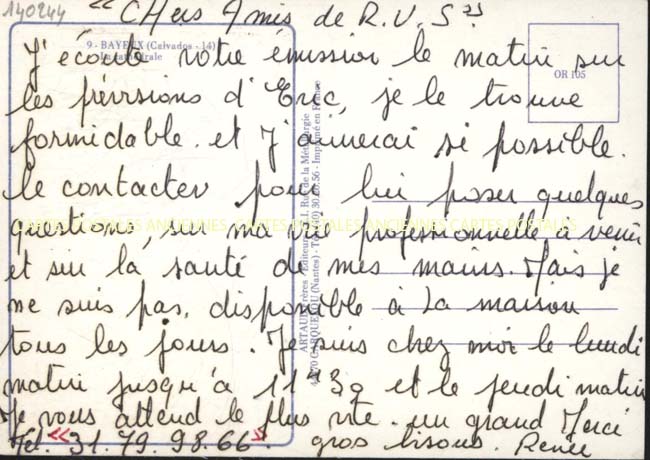 140244
"CHers Amis de R.V.S"
9 - BAYEUX (Calvados - 14)
La cathédrale
OR 105
J'écoute votre émission le matin sur
les prévisions d'Eric, je le trouve
formidable. et J'aimerai si possible.
le contacter pour lui poser quelques
questions, sur ma vie professionnelle à venir
et sur la santé de mes mains. Mais je
ne suis pas, disponible à la maison
tous les jours. Je suis chez moi le lundi
matin jusqu'à 11H30 et le jeudi matin
Je vous attend le plus vite. un grand Merci
Tél. "31.79.98.66". gros bisous. Renée
CARTES POSTALES ANCIENNES CARTES POSTALES ANCIENNES CARTES POSTALES
Rue de la Métallurgie
CARQUEFOU (Nantes)
Imprimé en France